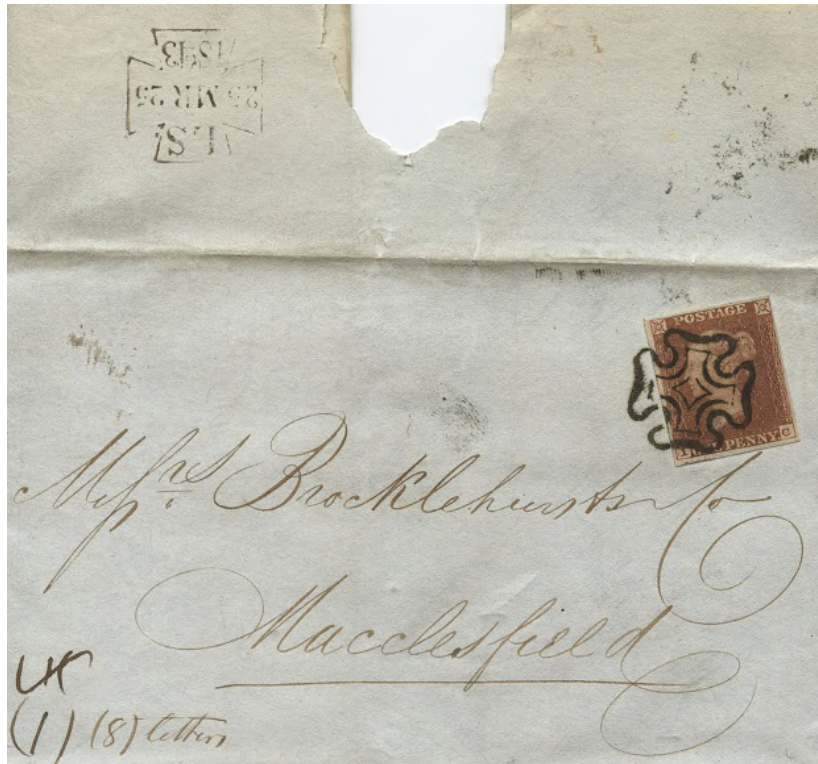 LS
25 MR 25
1843
POSTAGE
PENNY
C
Messrs Brocklehursts & Co
Macclesfield
(1) (8) letters